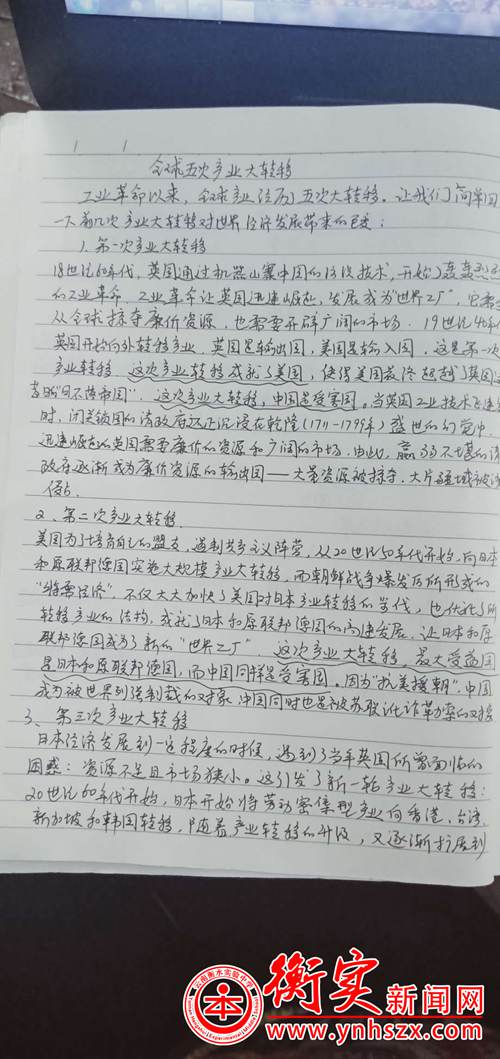 全球五次产业大转移
工业革命以来,全球产业经历了五次大转移。让我们简单回
一下前几次产业大转移对世界经济发展带来的巨变:
1. 第一次产业大转移
18世纪60年代,英国通过机器山寨中国的纺织技术,开始了轰轰烈烈
的工业革命。工业革命让英国迅速崛起,发展成为"世界工厂",它需要
从全球掠夺廉价资源,也需要开辟广阔的市场。19世纪40年代
英国开始向外转移产业,英国是输出国,美国是输入国。这是第一次
产业转移。这次产业转移成就了美国,使得美国最终超越了英国这
老的"日不落帝国"。这次产业大转移,中国是受害国。当英国工业技术飞速
时,闭关锁国的清政府还正沉浸在乾隆(1711-1799年)盛世的幻觉中。
迅速崛起的英国需要廉价的资源和广阔的市场,由此,羸弱不堪的清
政府逐渐成为廉价资源的输出国——大量资源被掠夺,大片疆域被
侵占。
2、第二次产业大转移
美国为了培育自己的盟友,遏制共产主义阵营,从20世纪50年代开始,向日本
和原联邦德国实施大规模产业大转移。而朝鲜战争爆发后所形成的
"特需经济",不仅大大加快了美国对日本产业转移的步伐,也优化了所
转移产业的结构,成就了日本和原联邦德国的高速发展,让日本和原
联邦德国成为了新的"世界工厂"。这次产业大转移,最大受益国
是日本和原联邦德国,而中国同样是受害国。因为"抗美援朝",中国
成为被世界列强制裁的对象,中国同时也是被苏联讹诈革命的对象
3、第三次产业大转移
日本经济发展到一定程度的时候,遇到了当年英国所曾面临的
困惑:资源不足且市场狭小。这引发了新一轮产业大转移:
20世纪60年代开始,日本开始将劳动密集型产业向香港、台湾、
新加坡和韩国转移,随着产业转移的升级,又逐渐扩展到
云南衡水实验中学
本
衡实新闻网
www.ynhszx.com